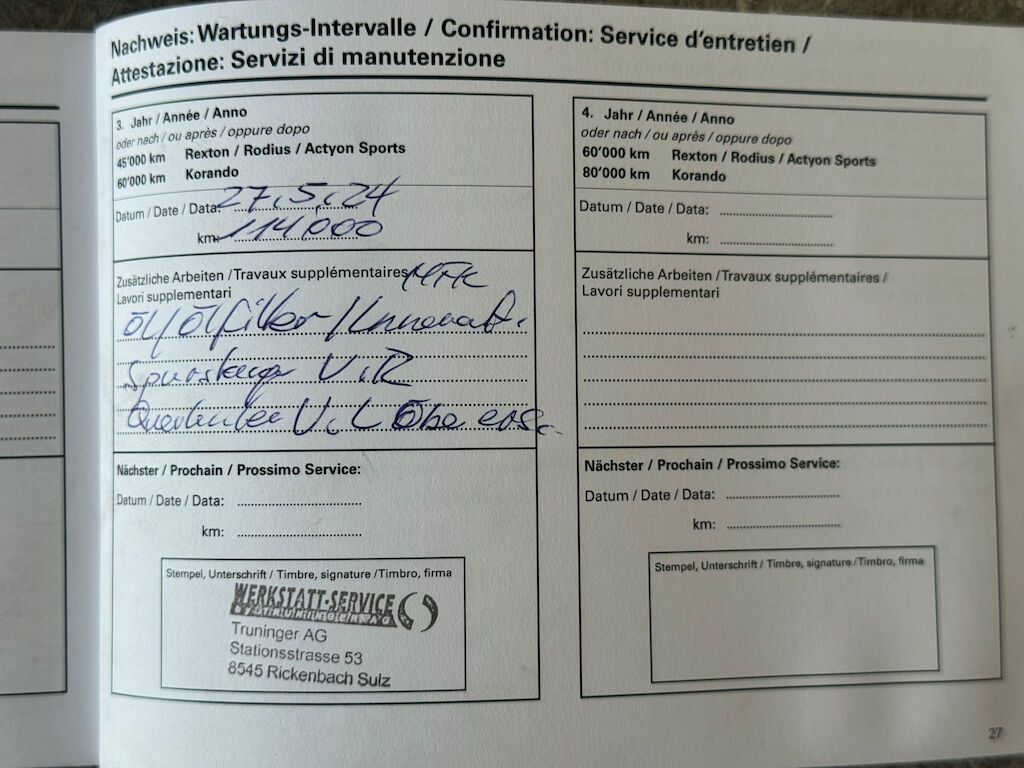 Nachweis: Wartungs-Intervalle / Confirmation: Service d'entretien /
Attestazione: Servizi di manutenzione
3. Jahr / Année / Anno
oder nach / ou après / oppure dopo
45'000 km Rexton / Rodius / Actyon Sports
60'000 km Korando
Datum / Date / Data: 27.5.24
km: 114000
Zusätzliche Arbeiten / Travaux supplémentaires MFK
Lavori supplementari
Öl/Ölfilter/Innenraumf.
Spurstange V.R
Querlenker V.L Obe ers.
Nächster / Prochain / Prossimo Service:
Datum / Date / Data:
km:
Stempel, Unterschrift / Timbre, signature / Timbro, firma
WERKSTATT-SERVICE
Truninger AG
Stationsstrasse 53
8545 Rickenbach Sulz
4. Jahr / Année / Anno
oder nach / ou après / oppure dopo
60'000 km Rexton / Rodius / Actyon Sports
80'000 km Korando
Datum / Date / Data:
km:
Zusätzliche Arbeiten / Travaux supplémentaires /
Lavori supplementari
Nächster / Prochain / Prossimo Service:
Datum / Date / Data:
km:
Stempel, Unterschrift / Timbre, signature / Timbro, firma
27